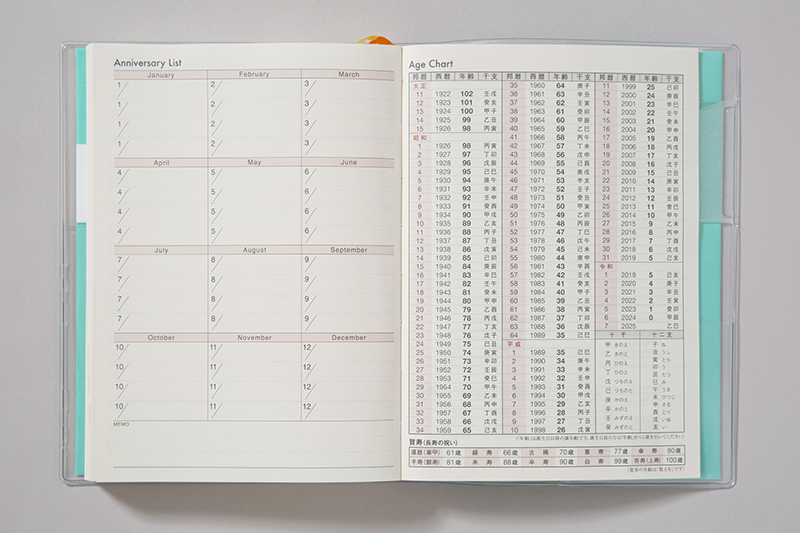 Anniversary List
January February March
1/ 2/ 3/
1/ 2/ 3/
1/ 2/ 3/
1/ 2/ 3/
April May June
4/ 5/ 6/
4/ 5/ 6/
4/ 5/ 6/
4/ 5/ 6/
July August September
7/ 8/ 9/
7/ 8/ 9/
7/ 8/ 9/
7/ 8/ 9/
October November December
10/ 11/ 12/
10/ 11/ 12/
10/ 11/ 12/
10/ 11/ 12/
MEMO
Age Chart
邦暦 西暦 年齢 干支
大正
11 1922 102 壬戌
12 1923 101 癸亥
13 1924 100 甲子
14 1925 99 乙丑
15 1926 98 丙寅
昭和
1 1926 98 丙寅
2 1927 97 丁卯
3 1928 96 戊辰
4 1929 95 己巳
5 1930 94 庚午
6 1931 93 辛未
7 1932 92 壬申
8 1933 91 癸酉
9 1934 90 甲戌
10 1935 89 乙亥
11 1936 88 丙子
12 1937 87 丁丑
13 1938 86 戊寅
14 1939 85 己卯
15 1940 84 庚辰
16 1941 83 辛巳
17 1942 82 壬午
18 1943 81 癸未
19 1944 80 甲申
20 1945 79 乙酉
21 1946 78 丙戌
22 1947 77 丁亥
23 1948 76 戊子
24 1949 75 己丑
25 1950 74 庚寅
26 1951 73 辛卯
27 1952 72 壬辰
28 1953 71 癸巳
29 1954 70 甲午
30 1955 69 乙未
31 1956 68 丙申
32 1957 67 丁酉
33 1958 66 戊戌
34 1959 65 己亥
邦暦 西暦 年齢 干支
35 1960 64 庚子
36 1961 63 辛丑
37 1962 62 壬寅
38 1963 61 癸卯
39 1964 60 甲辰
40 1965 59 乙巳
41 1966 58 丙午
42 1967 57 丁未
43 1968 56 戊申
44 1969 55 己酉
45 1970 54 庚戌
46 1971 53 辛亥
47 1972 52 壬子
48 1973 51 癸丑
49 1974 50 甲寅
50 1975 49 乙卯
51 1976 48 丙辰
52 1977 47 丁巳
53 1978 46 戊午
54 1979 45 己未
55 1980 44 庚申
56 1981 43 辛酉
57 1982 42 壬戌
58 1983 41 癸亥
59 1984 40 甲子
60 1985 39 乙丑
61 1986 38 丙寅
62 1987 37 丁卯
63 1988 36 戊辰
64 1989 35 己巳
平成
1 1989 35 己巳
2 1990 34 庚午
3 1991 33 辛未
4 1992 32 壬申
5 1993 31 癸酉
6 1994 30 甲戌
7 1995 29 乙亥
8 1996 28 丙子
9 1997 27 丁丑
10 1998 26 戊寅
邦暦 西暦 年齢 干支
11 1999 25 己卯
12 2000 24 庚辰
13 2001 23 辛巳
14 2002 22 壬午
15 2003 21 癸未
16 2004 20 甲申
17 2005 19 乙酉
18 2006 18 丙戌
19 2007 17 丁亥
20 2008 16 戊子
21 2009 15 己丑
22 2010 14 庚寅
23 2011 13 辛卯
24 2012 12 壬辰
25 2013 11 癸巳
26 2014 10 甲午
27 2015 9 乙未
28 2016 8 丙申
29 2017 7 丁酉
30 2018 6 戊戌
31 2019 5 己亥
令和
1 2019 5 己亥
2 2020 4 庚子
3 2021 3 辛丑
4 2022 2 壬寅
5 2023 1 癸卯
6 2024 0 甲辰
7 2025 乙巳
十干 十二支
甲 きのえ 子 ね
乙 きのと 丑 うし
丙 ひのえ 寅 とら
丁 ひのと 卯 う
戊 つちのえ 辰 たつ
己 つちのと 巳 み
庚 かのえ 午 うま
辛 かのと 未 ひつじ
壬 みずのえ 申 さる
癸 みずのと 酉 とり
戌 いぬ
亥 い
賀寿(長寿の祝い)
還暦(華甲) 61歳 緑寿 66歳 古稀 70歳 喜寿 77歳 傘寿 80歳
半寿(盤寿) 81歳 米寿 88歳 卒寿 90歳 白寿 99歳 百寿(上寿) 100歳
(賀寿の年齢は「数え年」です)